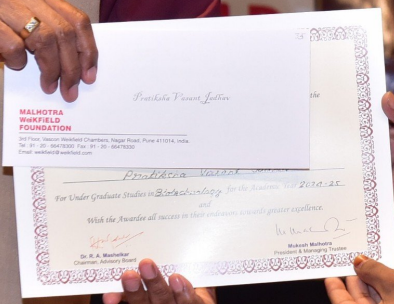 Pratiksha Vasant Jadhav
the
MALHOTRA
WEiKFiELD
FOUNDATION
3rd Floor, Vascon Weikfield Chambers, Nagar Road, Pune 411014, India.
Tel : 91 - 20 - 66478300 Fax : 91 - 20 - 66478300
Email: weikfield@weikfield.com
Pratiksha Vasant
For Under Graduate Studies in Biotechnology for the Academic Year 2024-25
and
Wish the Awardee all success in their endeavors towards greater excellence.
Dr. R. A. Mashelkar
Chairman, Advisory Board
Mukesh Malhotra
President & Managing Trustee